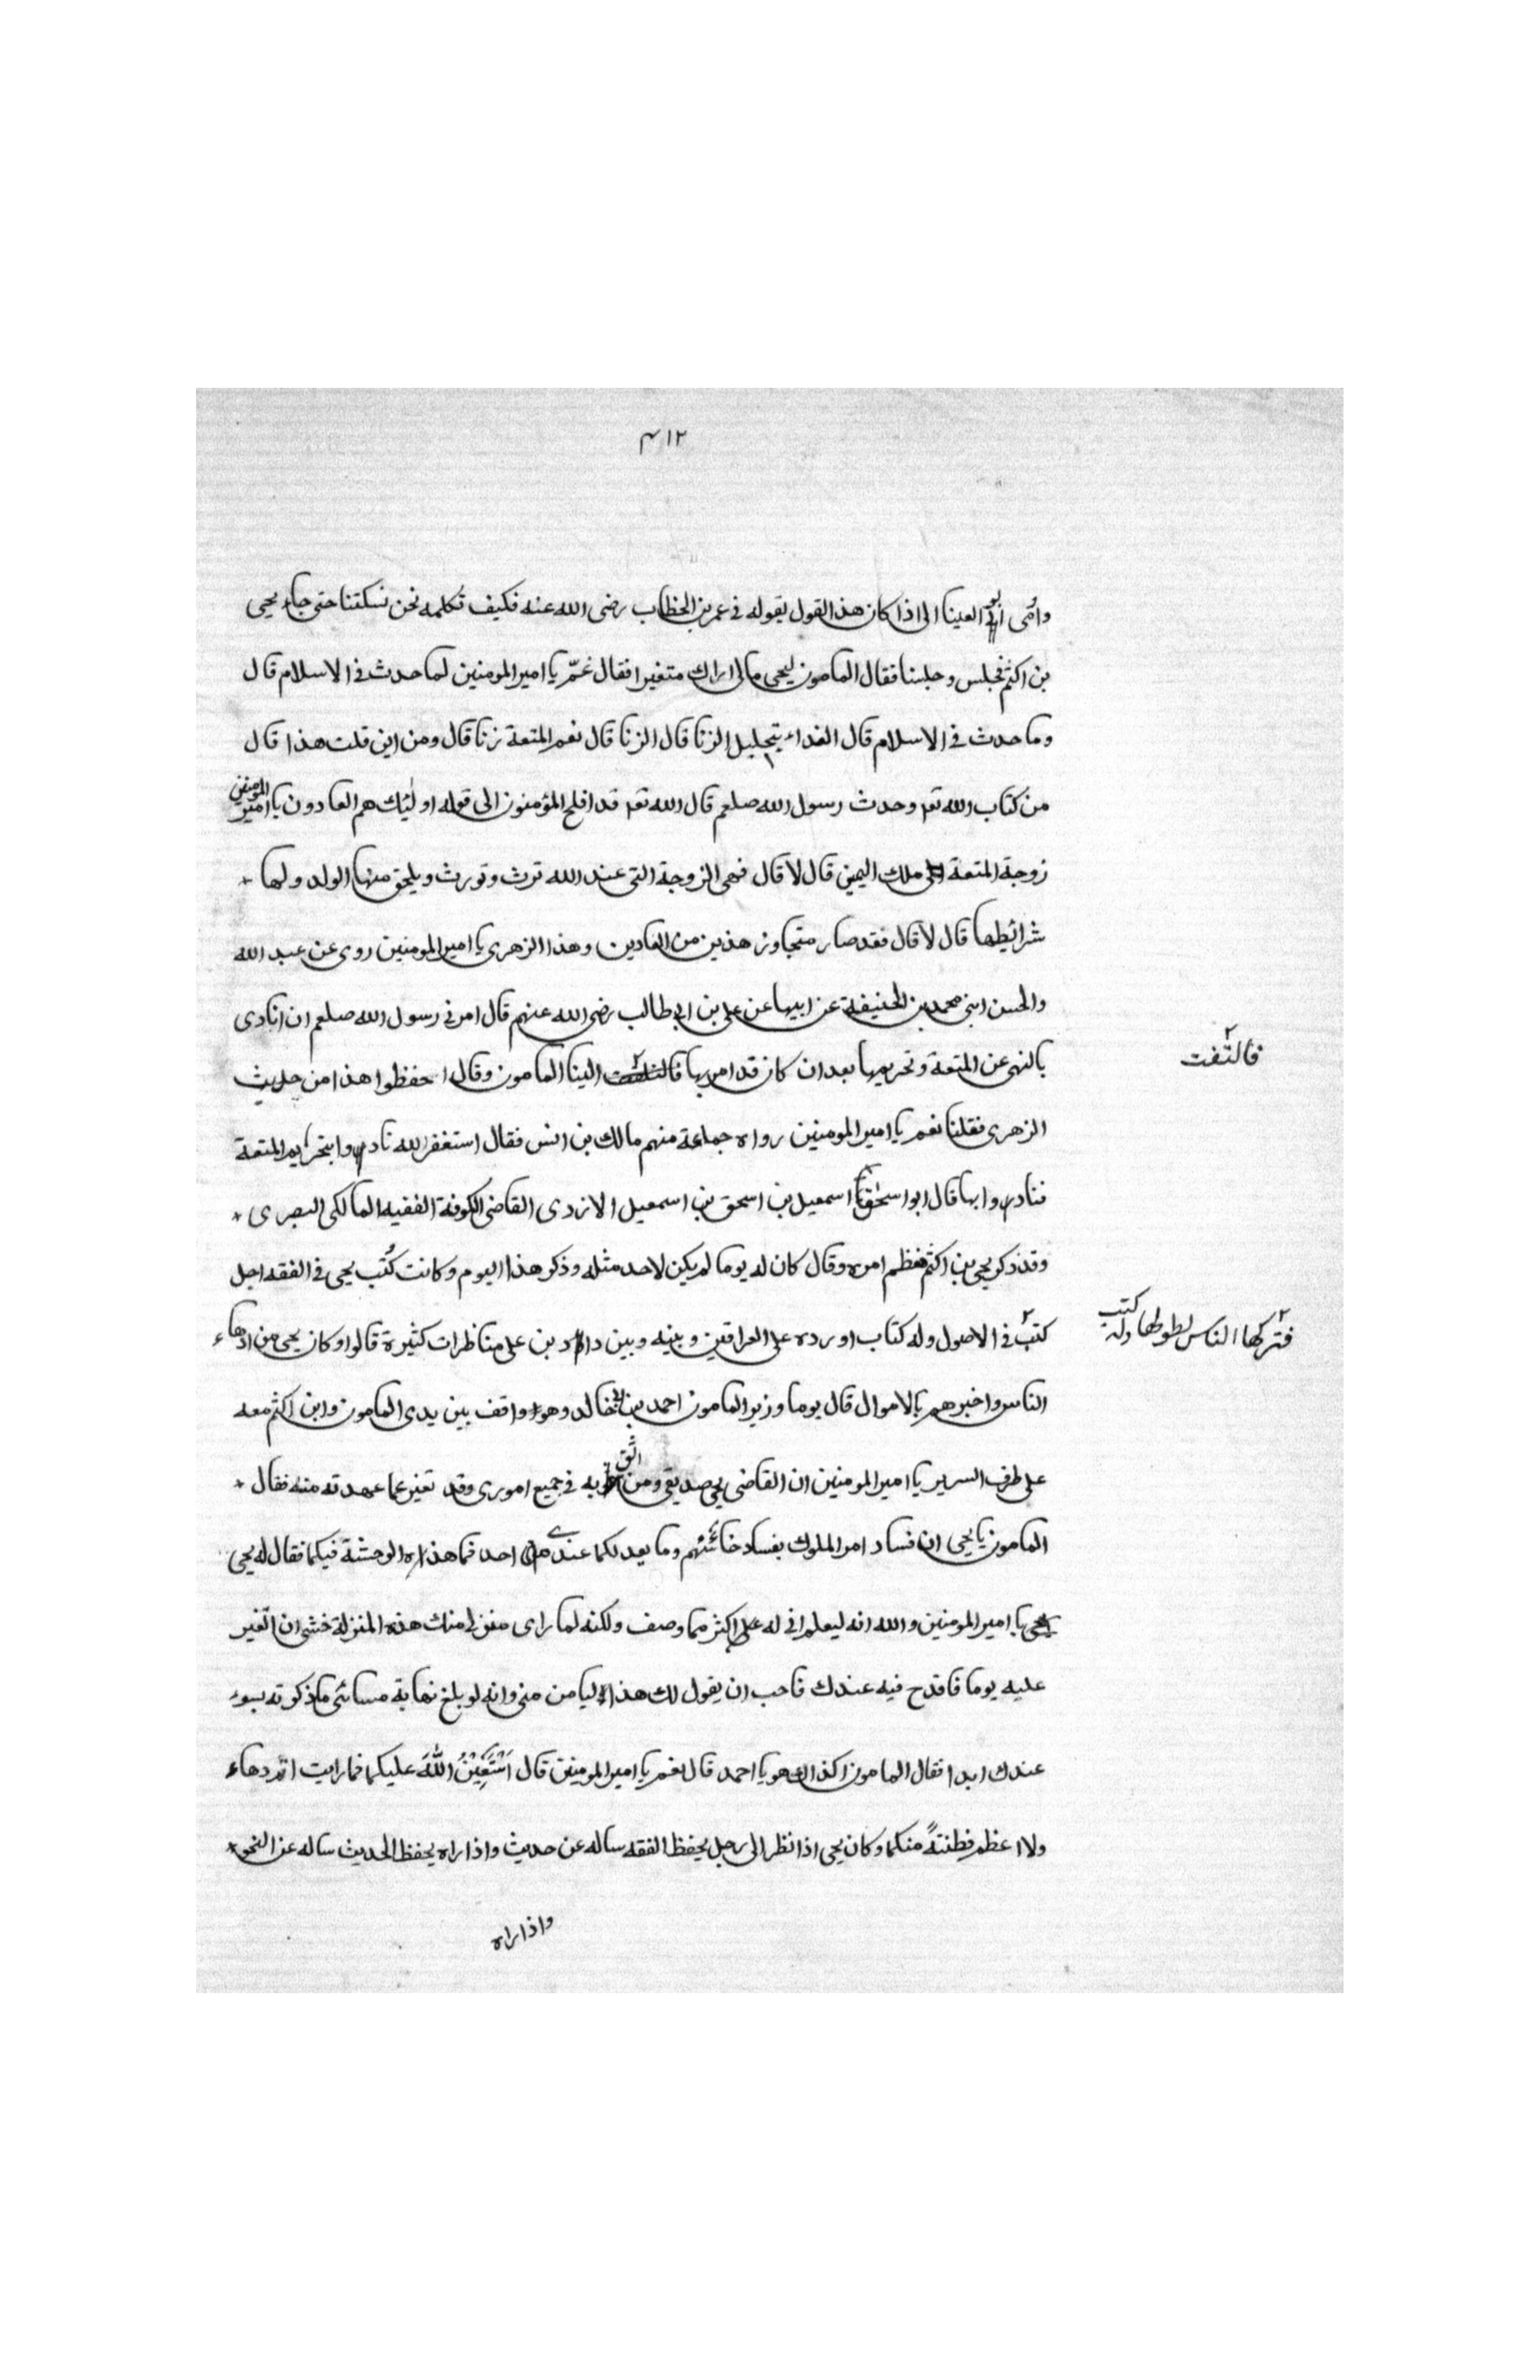 ٤١٢
وأمى ابو العينا الى اذا كان هذا القول يقوله فى عمر بن الخطاب رضى الله عنه فكيف نكلمه نحن نسكتنا حتى جاء يحيى
بن اكثم فجلس وجلسنا فقال المامون ليحيى مالى اراك متغيرا فقال غمّ يا امير المومنين لما حدث فى الاسلام قال
وما حدث فى الاسلام قال الغداء بتحليل الزنا قال الزنا قال نعم المتعة زنا قال ومن اين قلت هذا قال
من كتاب الله تعه وحدث رسول الله صلعم قال الله تعه قد افلح المؤمنون الى قوله اولئك هم العادون يا امير المومنين
زوجة المتعة ملك اليمين قال لا قال فهى الزوجة التى عند الله ترث وتورث ويلحق منها الولد ولها
شرائيطها قال لا قال فقد صار متجاوز هذين من العادين وهذا الزهرى يا امير المومنين روى عن عبد الله
والحسن ابنى محمد بن الحنيفة عن ابيها عن على بن ابى طالب رضى الله عنهم قال امرنى رسول الله صلعم ان انادى
بالنهى عن المتعة وتحريمها بعد ان كان قد امر بها فالتفت الينا المامون وقال احفظوا هذا من حديث
فالتفت
الزهرى فقلنا نعم يا امير المومنين رواه جماعة منهم مالك بن انس فقال استغفر الله نادوا بتحريم المتعة
فنادوا بها قال ابو اسحق اسمعيل بن اسحق بن اسمعيل الازدى القاضى الكوفة الفقيه المالكى البصرى
وقد ذكر يحيى بن اكثم فعظم امره وقال كان له يوما لم يكن لاحد مثله وذكر هذا اليوم وكانت كُتب يحيى فى الفقه اجل
كتب فى الاصول وله كتاب اورده على العراقين وبينه وبين داود بن على مناظرات كثيرة قالوا وكان يحيى من ادهاء
فتركها الناس لطولها وله كتب
الناس واخبرهم بالاموال قال يوما وزير المامون احمد بن ابى خالد وهو واقف بين يدى المامون وابن اكثم معه
على طرف السرير يا امير المومنين ان القاضى يحيى صديقى ومن اثق به فى جميع امورى وقد تغير عما عهدته منه فقال
المامون يا يحيى ان فساد امر الملوك بفساد خائنهم وما يعدلكما عندى احد فما هذه الوحشة فيكما فقال له يحيى
يا امير المومنين والله انه ليعلم انى له على اكثر مما وصف ولكنه لما راى منزلى منك هذه المنزلة خشى ان اتغير
عليه يوما فاقدح فيه عندك فاحب ان يقول لك هذا ليامن منى وانه لو بلغ نهاية مسائتى ما ذكرته بسوء
عندك ابدا فقال المامون اكذالك هو يا احمد قال نعم يا امير المومنين قال اَسْتَعِيْنُ اللّٰهَ عليكما فما رايت اتم دهاء
ولا اعظم فطنتةً منكما وكان يحيى اذا نظر الى رجل يحفظ الفقه ساله عن حديث واذا راه يحفظ الحديث ساله عن النحو
واذا راه